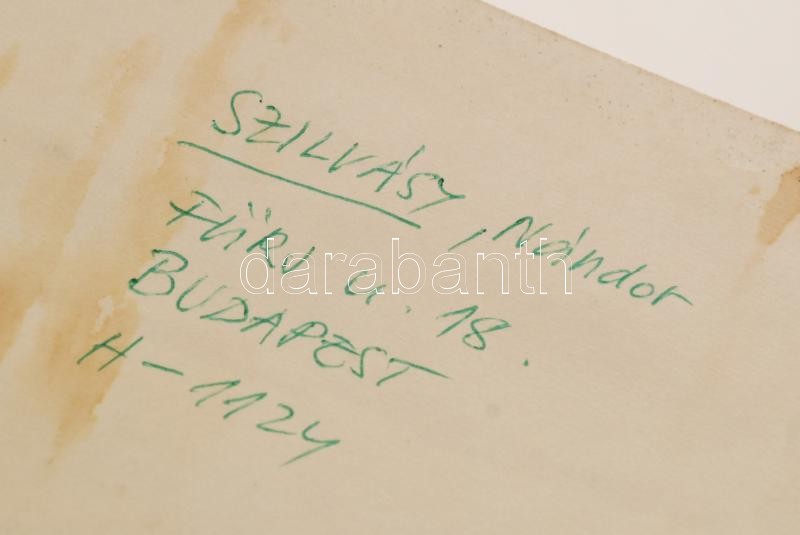 SZILVÁSY, Nándor
FÜRJ u. 18.
BUDAPEST
H-1124
darabanth